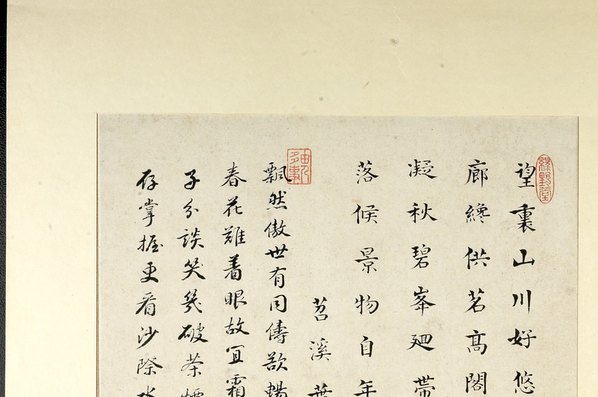 望裏山川好悠
廊纔供茗高閣
凝秋碧峯廻帶
落候景物自年
苕溪
飄然傲世有同儔歆
春花難着眼故宜霜
子分談笑幾破茶煙
存掌握更看沙際水